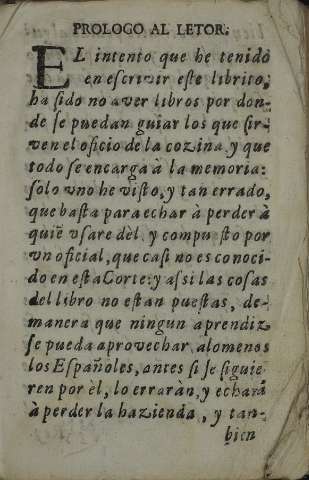 PROLOGO AL LETOR.
EL intento que he tenido
en escrivir este librito,
ha sido no aver libros por don-
de se puedan guiar los que sir-
ven el oficio de la cozina, y que
todo se encarga à la memoria:
solo vno he visto, y tan errado,
que basta para echar à perder à
quiẽ vsare dèl, y compu esto por
vn oficial, que casi no es conoci-
do en esta Corte: y assi las cosas
del libro no estan puestas, de-
manera que ningun aprendiz
se pueda aprovechar, alomenos
los Españoles, antes si se siguie-
ren por èl, lo erraràn, y echarà
à perder la hazienda, y tan-
bien